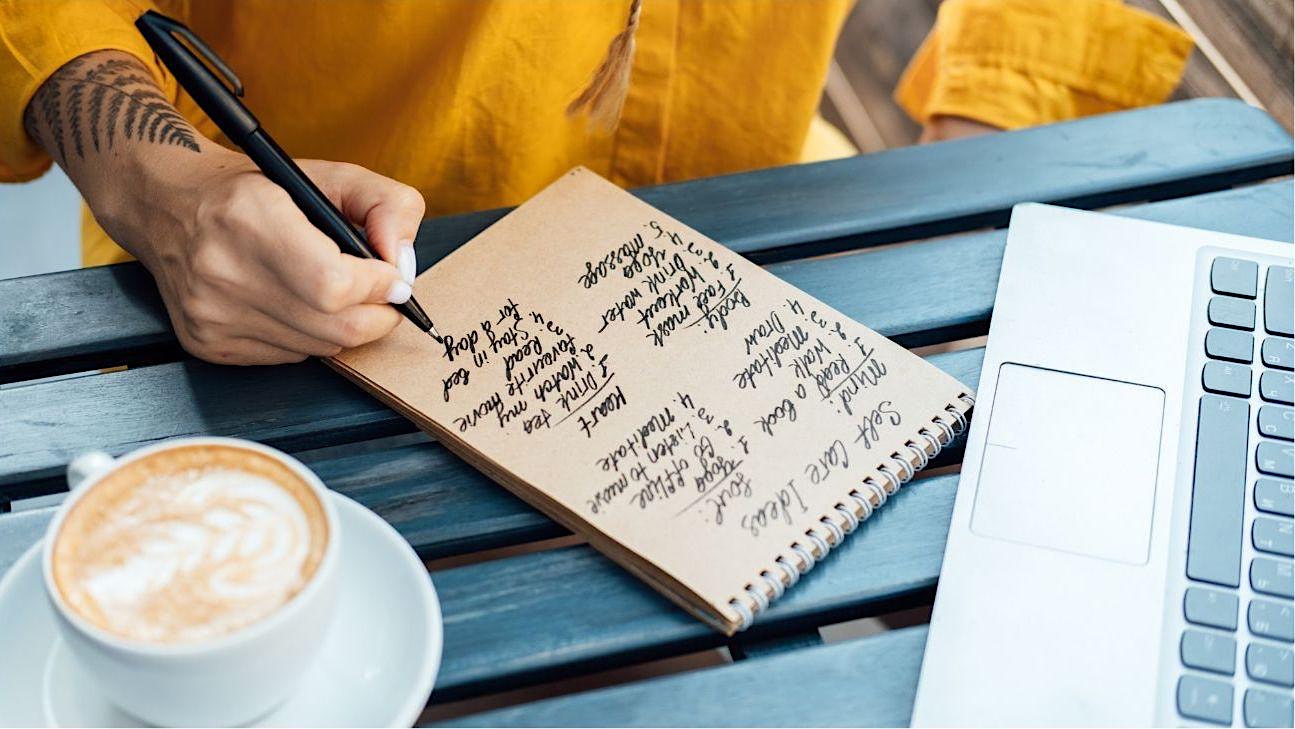 Self Care Ideas
Mind:
1. Read a book
2. Walk
3. Meditate
4. Draw
Soul:
1. Yoga
2. Go offline
3. Listen to music
4. Meditate
Body:
1. Face mask
2. Workout
3. Drink water
4. Yoga
5. Massage
Heart
1. Drink tea
2. Watch my
favourite movie
3. Read
4. Stay in bed
for a day